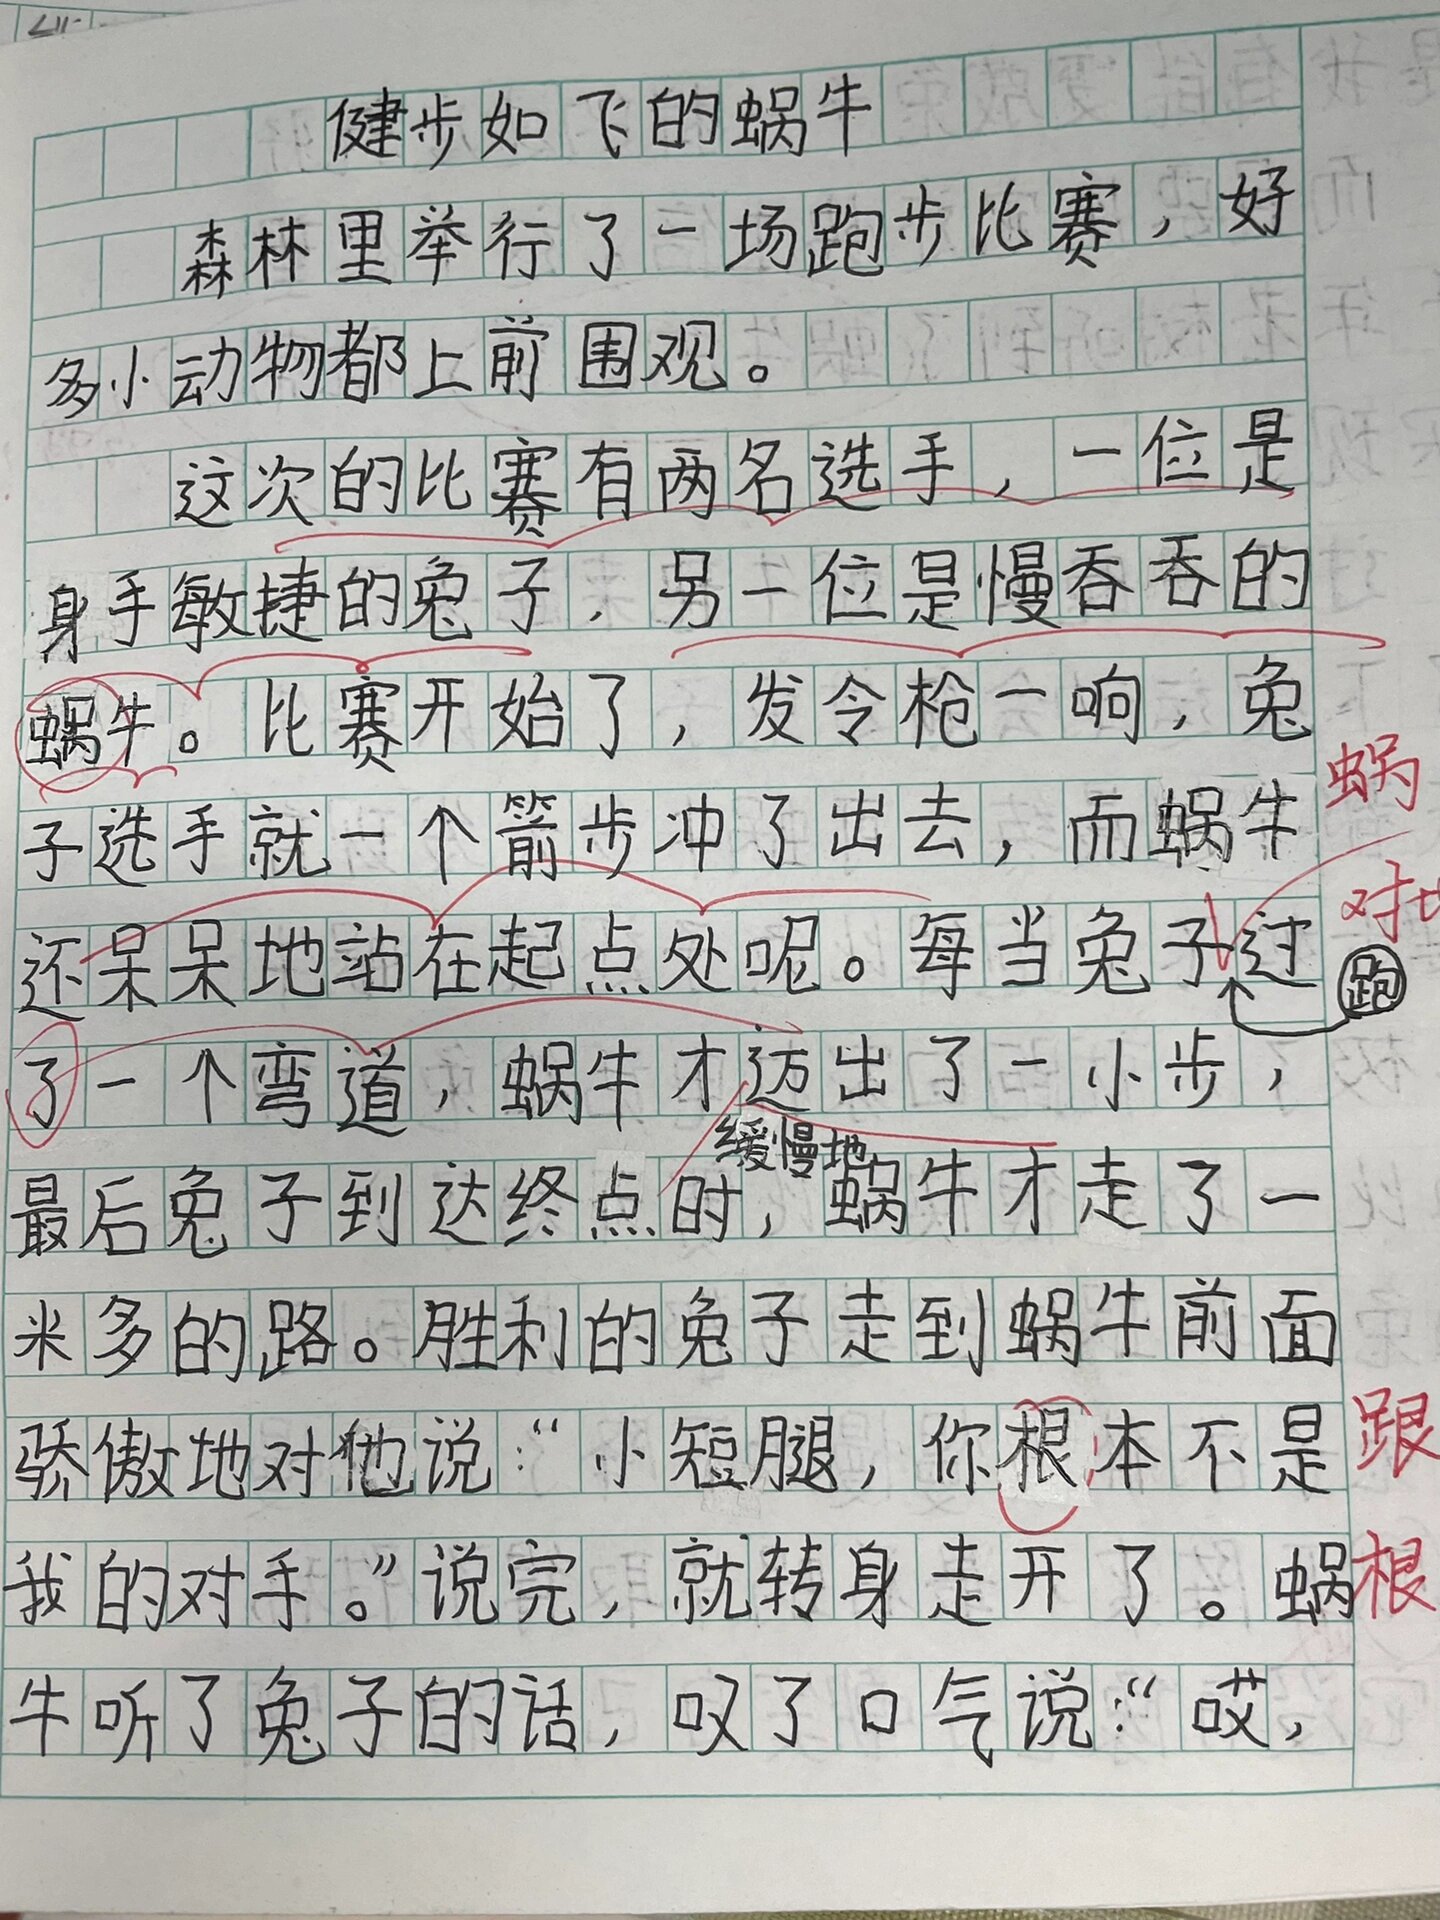 健步如飞的蜗牛
森林里举行了一场跑步比赛，好
多小动物都上前围观。
这次的比赛有两名选手，一位是
身手敏捷的兔子，另一位是慢吞吞的
蜗牛。比赛开始了，发令枪一响，兔
蜗
子选手就一个箭步冲了出去，而蜗牛
还呆呆地站在起点处呢。每当兔子过
跑
了一个弯道，蜗牛才迈出了一小步，
缓慢地
最后兔子到达终点时，蜗牛才走了一
米多的路。胜利的兔子走到蜗牛前面
骄傲地对他说：“小短腿，你根本不是
跟
我的对手。”说完，就转身走开了。蜗
根
牛听了兔子的话，叹了口气说：“哎，